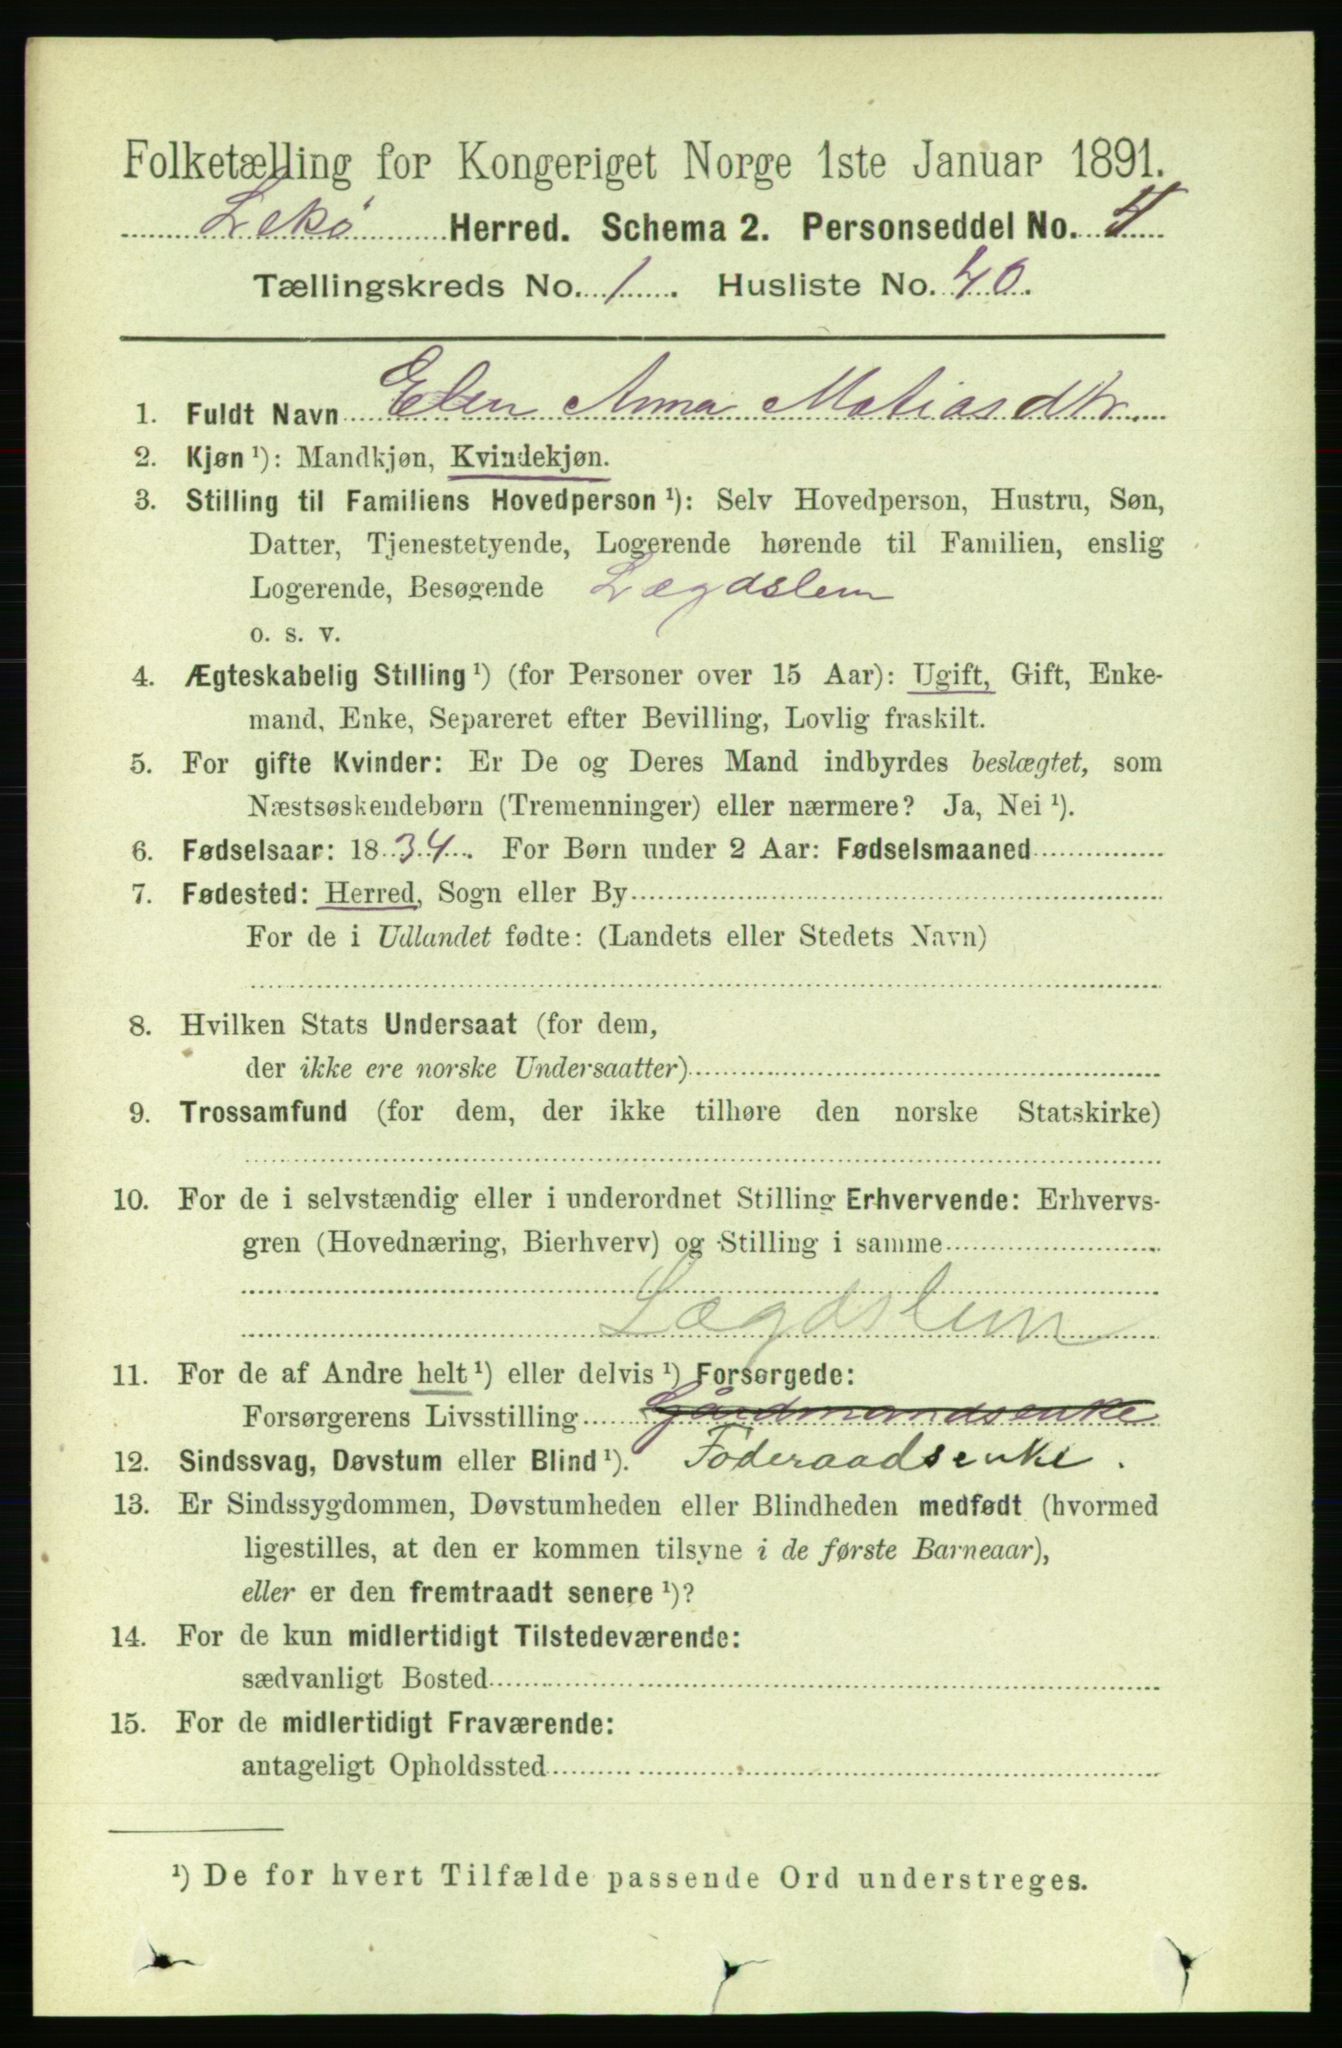 Folketælling for Kongeriget Norge 1ste Januar 1891.
Lekø Herred. Schema 2. Personseddel No. 4
Tællingskreds No. 1. Husliste No. 40.
1. Fuldt Navn Elen Anna Matiasdtr.
2. Kjøn ¹): Mandkjøn, Kvindekjøn.
3. Stilling til Familiens Hovedperson ¹): Selv Hovedperson, Hustru, Søn,
Datter, Tjenestetyende, Logerende hørende til Familien, enslig
Logerende, Besøgende Lægdslem
o. s. v.
4. Ægteskabelig Stilling ¹) (for Personer over 15 Aar): Ugift, Gift, Enke-
mand, Enke, Separeret efter Bevilling, Lovlig fraskilt.
5. For gifte Kvinder: Er De og Deres Mand indbyrdes beslægtet, som
Næstsøskendebørn (Tremenninger) eller nærmere? Ja, Nei ¹).
6. Fødselsaar: 1834. For Børn under 2 Aar: Fødselsmaaned
7. Fødested: Herred, Sogn eller By
For de i Udlandet fødte: (Landets eller Stedets Navn)
8. Hvilken Stats Undersaat (for dem,
der ikke ere norske Undersaatter)
9. Trossamfund (for dem, der ikke tilhøre den norske Statskirke)
10. For de i selvstændig eller i underordnet Stilling Erhvervende: Erhvervs-
gren (Hovednæring, Bierhverv) og Stilling i samme
Lægdslem
11. For de af Andre helt ¹) eller delvis ¹) Forsørgede:
Forsørgerens Livsstilling Gaardmandsenke
12. Sindssvag, Døvstum eller Blind ¹). Føderaadsenke.
13. Er Sindssygdommen, Døvstumheden eller Blindheden medfødt (hvormed
ligestilles, at den er kommen tilsyne i de første Barneaar),
eller er den fremtraadt senere ¹)?
14. For de kun midlertidigt Tilstedeværende:
sædvanligt Bosted
15. For de midlertidigt Fraværende:
antageligt Opholdssted
¹) De for hvert Tilfælde passende Ord understreges.